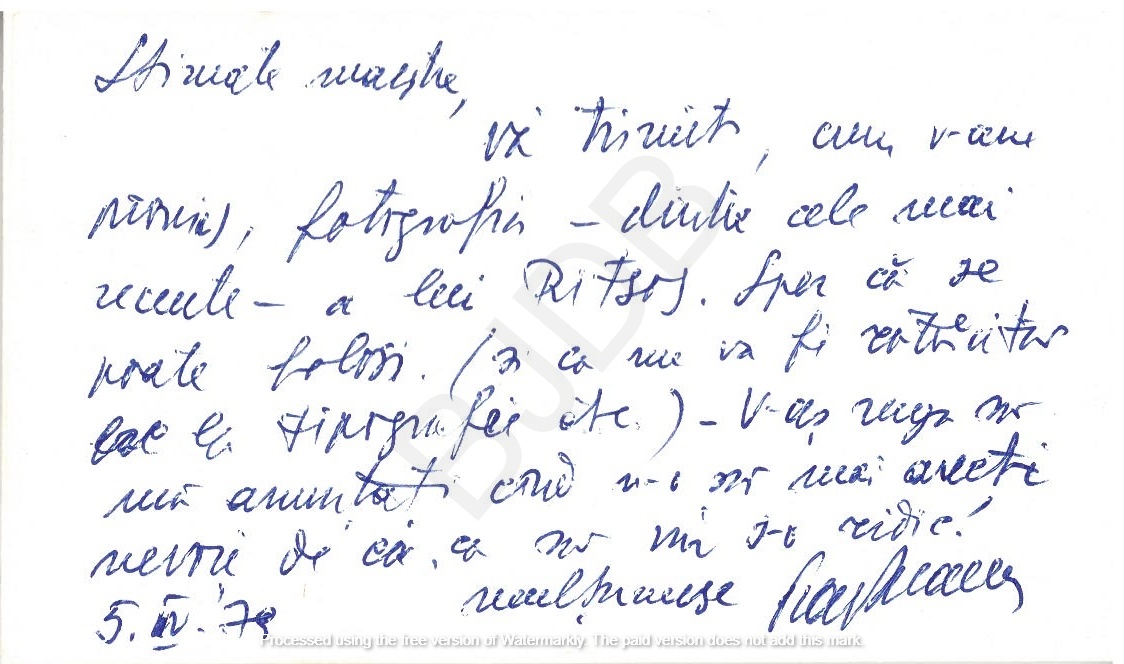 Stimate maestre,
vă trimit, cum v-am
promis, fotografia – dintre cele mai
recente – a lui Ritsos. Sper că se
poate folosi. (și ca nu va fi
la tipografie etc.) – V-aș ruga să
mă anunțați cînd n-o să mai aveți
nevoie de ea, ca să vin s-o ridic!
mulțumesc
5. IV. 70
BJDB
Processed using the free version of Watermarkly. The paid version does not add this mark.